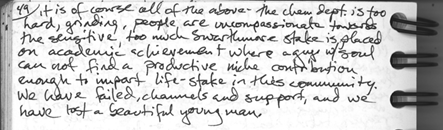 49/ it is of course all of the above - the chem dept. is too
hard, grinding, people are uncompassionate towards
the sensitive too much Swarthmore stake is placed
on academic achievement where a guy w/ soul
can not find a productive niche contribution
enough to impart life-stake in this community.
We have failed, channels and support, and we
have lost a beautiful young man.